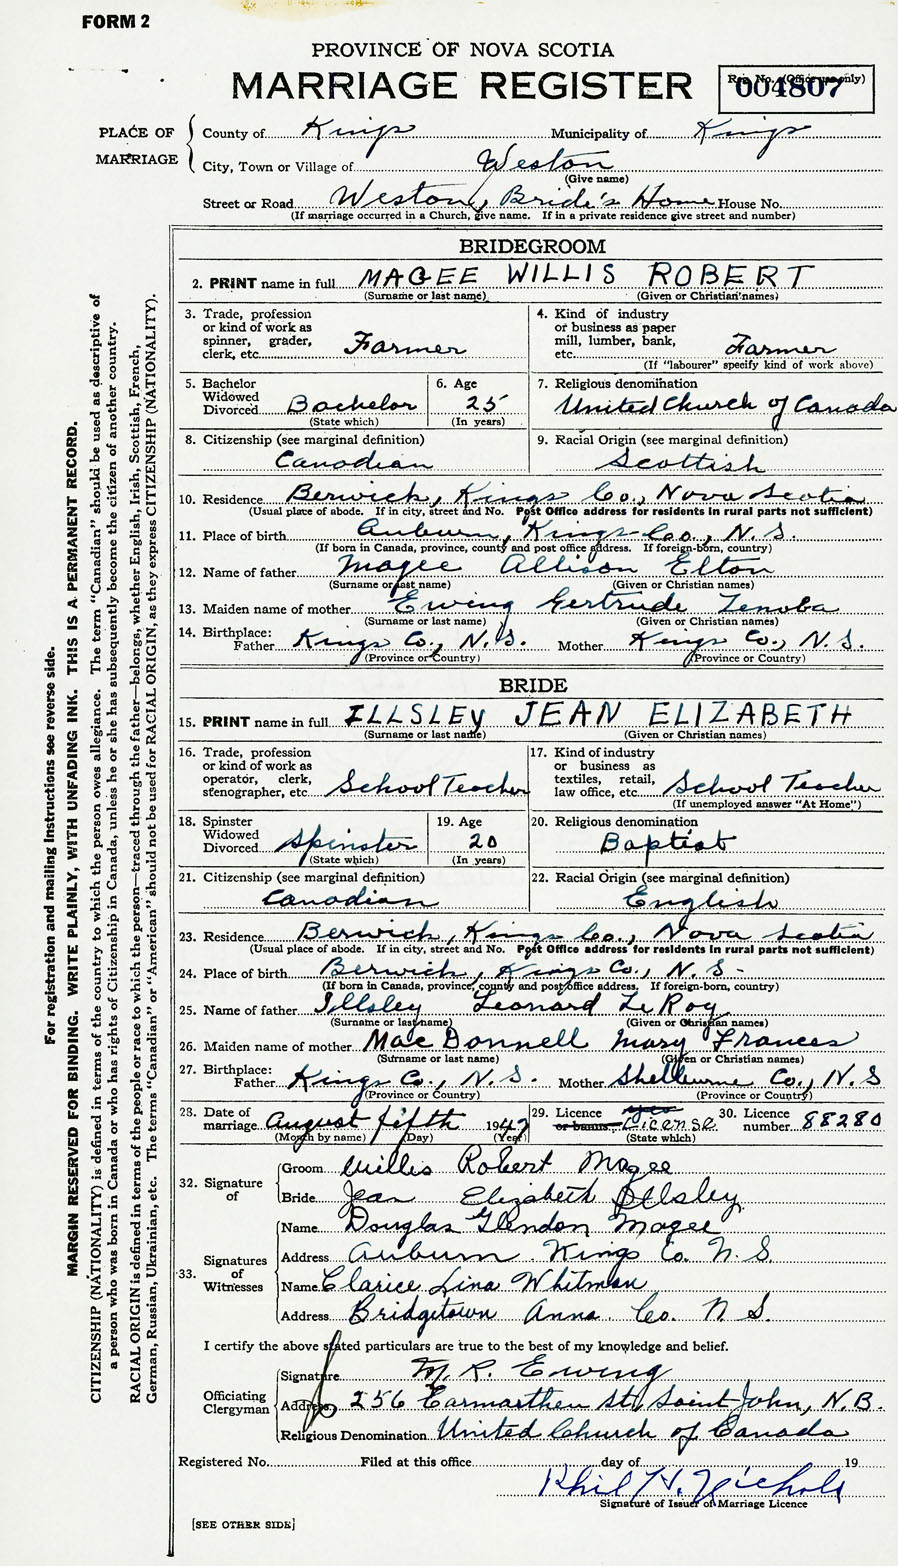 FORM 2
PROVINCE OF NOVA SCOTIA
MARRIAGE REGISTER
Reg. No. (Office use only)
004807
PLACE OF MARRIAGE
County of Kings Municipality of Kings
City, Town or Village of Weston
(Give name)
Street or Road Weston, Bride's Home House No.
(If marriage occurred in a Church, give name. If in a private residence give street and number)
BRIDEGROOM
2. PRINT name in full MAGEE WILLIS ROBERT
(Surname or last name) (Given or Christian names)
3. Trade, profession or kind of work as spinner, grader, clerk, etc. Farmer
4. Kind of industry or business as paper mill, lumber, bank, etc. Farmer
(If "labourer" specify kind of work above)
5. Bachelor Widowed Divorced Bachelor
(State which)
6. Age 25
(In years)
7. Religious denomination
United Church of Canada
8. Citizenship (see marginal definition)
Canadian
9. Racial Origin (see marginal definition)
Scottish
10. Residence Berwick, Kings Co., Nova Scotia
(Usual place of abode. If in city, street and No. Post Office address for residents in rural parts not sufficient)
11. Place of birth Auburn, Kings Co., N.S.
(If born in Canada, province, county and post office address. If foreign-born, country)
12. Name of father Magee Allison Elton
(Surname or last name) (Given or Christian names)
13. Maiden name of mother Ewing Gertrude Zenoba
(Surname or last name) (Given or Christian names)
14. Birthplace:
Father Kings Co., N.S. Mother Kings Co., N.S.
(Province or Country) (Province or Country)
BRIDE
15. PRINT name in full ILLSLEY JEAN ELIZABETH
(Surname or last name) (Given or Christian names)
16. Trade, profession or kind of work as operator, clerk, stenographer, etc. School Teacher
17. Kind of industry or business as textiles, retail, law office, etc. School Teacher
(If unemployed answer "At Home")
18. Spinster Widowed Divorced Spinster
(State which)
19. Age 20
(In years)
20. Religious denomination
Baptist
21. Citizenship (see marginal definition)
Canadian
22. Racial Origin (see marginal definition)
English
23. Residence Berwick, Kings Co., Nova Scotia
(Usual place of abode. If in city, street and No. Post Office address for residents in rural parts not sufficient)
24. Place of birth Berwick, Kings Co., N.S-
(If born in Canada, province, county and post office address. If foreign-born, country)
25. Name of father Illsley Leonard LeRoy
(Surname or last name) (Given or Christian names)
26. Maiden name of mother MacDonnell Mary Frances
(Surname or last name) (Given or Christian names)
27. Birthplace:
Father Kings Co., N.S. Mother Shelburne Co., N.S
(Province or Country) (Province or Country)
28. Date of marriage August fifth 1947
(Month by name) (Day) (Year)
29. Licence or banns License
(State which)
30. Licence number 88280
32. Signature of
Groom Willis Robert Magee
Bride Jean Elizabeth Illsley
33. Signatures of Witnesses
Name Douglas Glendon Magee
Address Auburn Kings Co. N.S.
Name Clarice Lina Whitman
Address Bridgetown Anna. Co. N.S.
I certify the above stated particulars are true to the best of my knowledge and belief.
Officiating Clergyman
Signature M. R. Ewing
Address 256 Carmarthen St, Saint John, N.B.
Religious Denomination United Church of Canada
Registered No. Filed at this office day of 19
Phil H. Nichols
Signature of Issuer of Marriage Licence
[SEE OTHER SIDE]
For registration and mailing instructions see reverse side.
MARGIN RESERVED FOR BINDING. WRITE PLAINLY, WITH UNFADING INK. THIS IS A PERMANENT RECORD.
CITIZENSHIP (NATIONALITY) is defined in terms of the country to which the person owes allegiance. The term "Canadian" should be used as descriptive of
a person who was born in Canada or who has rights of Citizenship in Canada, unless he or she has subsequently become the citizen of another country.
RACIAL ORIGIN is defined in terms of the people or race to which the person—traced through the father—belongs, whether English, Irish, Scottish, French,
German, Russian, Ukrainian, etc. The terms "Canadian" or "American" should not be used for RACIAL ORIGIN, as they express CITIZENSHIP (NATIONALITY).